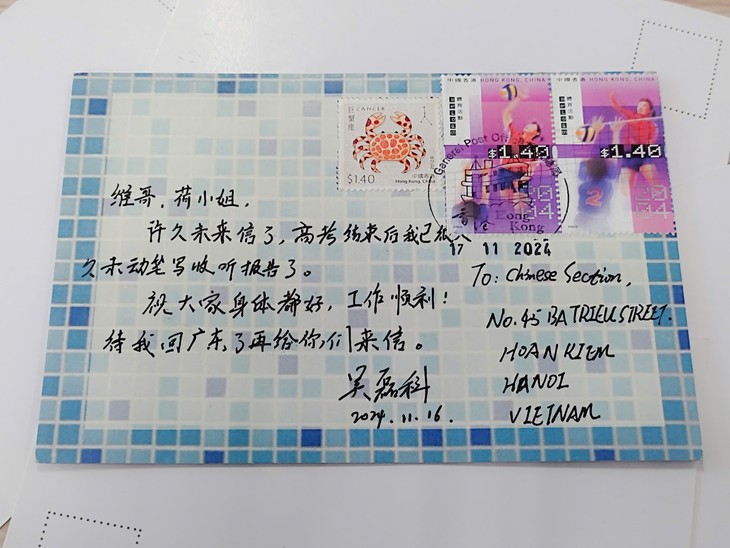 CANCER
巨蟹座
$1.40
中國香港
Hong Kong, China
中國香港 HONG KONG, CHINA
體育活動
$1.40
中國香港 HONG KONG, CHINA
體育活動
$1.40
General Post Office
Hong Kong
17 11 2024
维哥，荷小姐，
许久未来信了，高考结束后我已很久
久未动笔写收听报告了。
祝大家身体都好，工作顺利！
待我回广东了再给你们来信。
吴磊科
2024.11.16.
To: Chinese Section,
No.45 BA TRIEU STREET.
HOAN KIEM
HANOI
VIETNAM